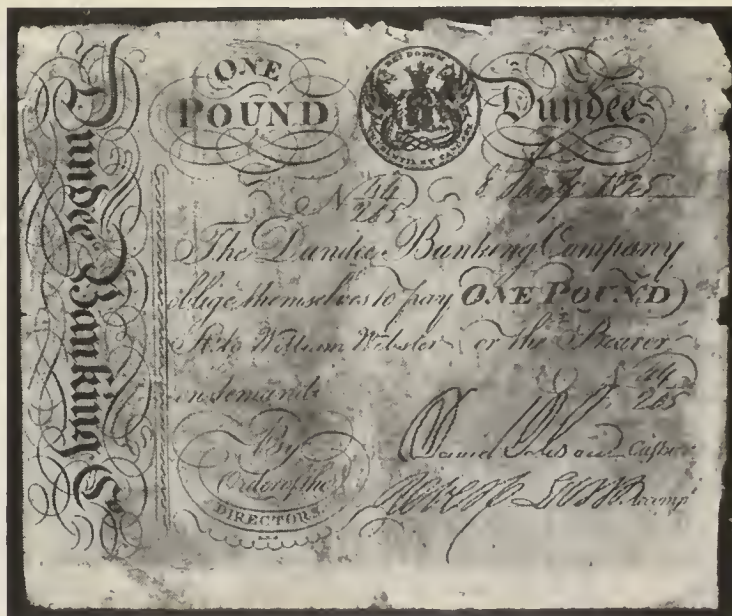 Dundee Banking Co
ONE
POUND
DEI DONUM
PRUDENTIA ET CANDORE
Dundee
No 44/265 8 Jany 1825
The Dundee Banking Company
oblige themselves to pay ONE POUND
Stg to William Webster or the Bearer
on demand.
No 44/265
By
Order of the
DIRECTORS
David Cashr
Accompt